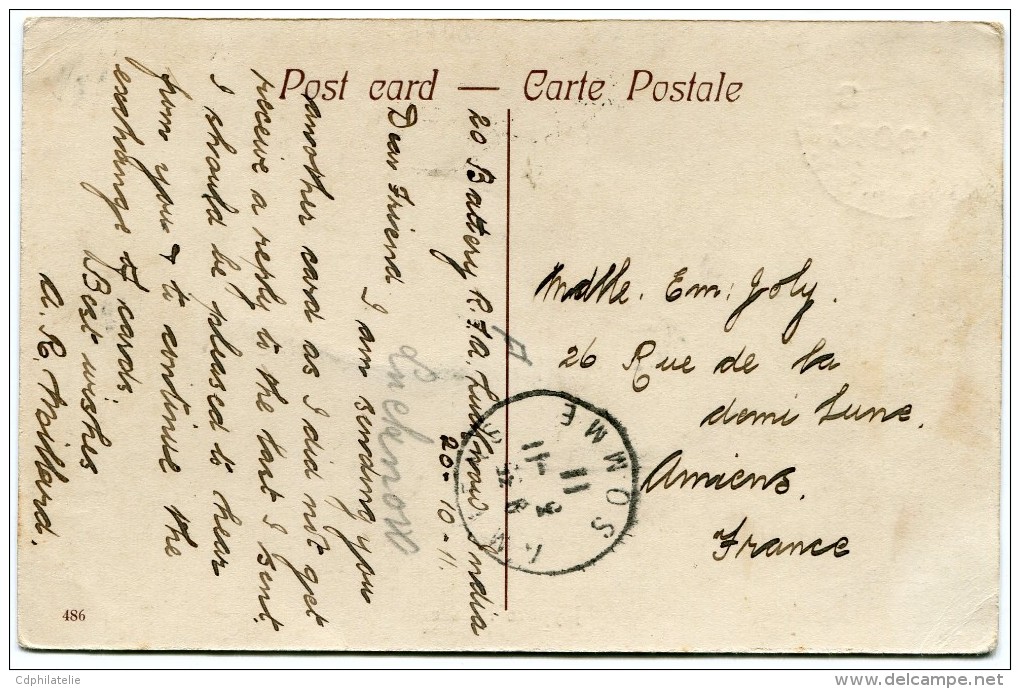 Post card — Carte Postale
20 Battery R.F.A. Lucknow India
20-10-11.
Dear Friend I am sending you
another card as I did not get
receive a reply to the last I sent.
I should be pleased to hear
from you & to continue the
exchange of cards.
Best wishes
A. R.
Lucknow
Mdlle. Em: Joly.
26 Rue de la
demi Lune.
Amiens.
France
SOMME
11
11
486
Cdphilatelie